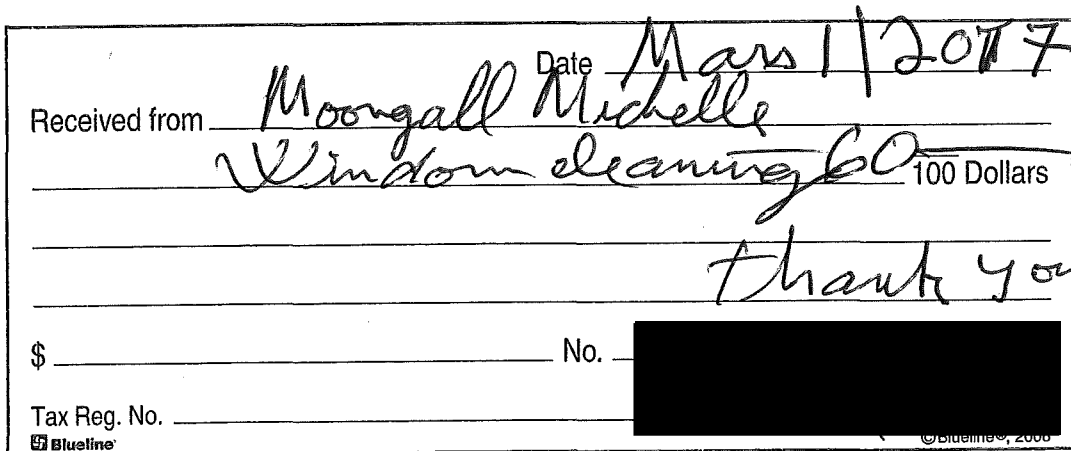 Date Mars 1 | 2017
Received from Moongall Michelle
Window cleaning 60 100 Dollars
thank you
$ No.
Tax Reg. No.
Blueline ©Blueline®, 2008